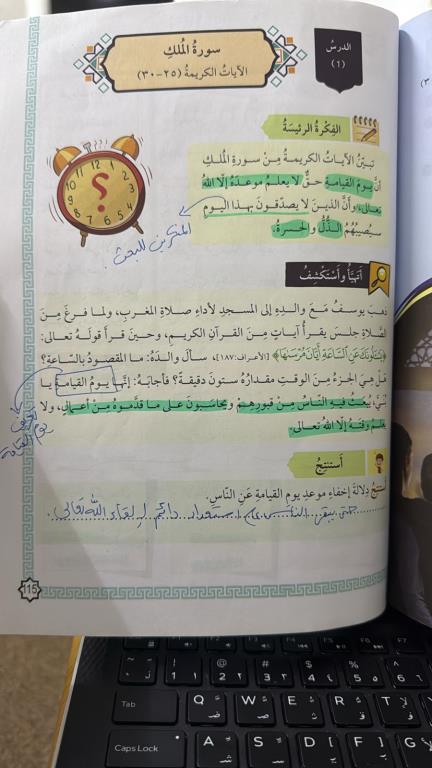 الدرسُ
(٦)
سورةُ المُلكِ
الآياتُ الكريمةُ (٢٥-٣٠)
الفِكْرةُ الرئيسَةُ
تبيّنُ الآياتُ الكريمةُ مِنْ سورةِ المُلكِ
أنّ يومَ القيامةِ حقٌّ لا يعلمُ موعدَهُ إلّا اللهُ
تعالى، وأنّ الذينَ لا يصدّقونَ بهذا اليومِ
سيُصيبُهُم الذُّلُّ والحَسرةُ.
المنكرين للبعث.
12
1
2
3
4
5
6
7
8
9
10
11
?
أتهيّأُ وأَسْتَكْشِفُ
ذهبَ يوسفُ مَعَ والدِهِ إلى المسجدِ لأداءِ صلاةِ المغربِ، ولما فرغَ مِنَ
الصَّلاةِ جلسَ يقرأُ آياتٍ مِنَ القرآنِ الكريمِ، وحينَ قرأَ قولَهُ تعالى:
﴿يَسْـَٔلُونَكَ عَنِ ٱلسَّاعَةِ أَيَّانَ مُرْسَىٰهَا﴾ [الأعراف: ١٨٧]، سألَ والدَهُ: ما المقصودُ بالسّاعةِ؟
هَلْ هِيَ الجزءُ مِنَ الوقتِ مقدارُهُ ستونَ دقيقةً؟ فأجابَهُ: إنّها يومُ القيامةِ يا
بُنيّ، يُبعثُ فيهِ النّاسُ مِنْ قبورِهِمْ ويُحاسَبونَ على ما قدّموهُ مِنْ أعمالٍ، ولا
يعلمُ وقتَهُ إلّا اللهُ تعالى.
يوم القيامة
أَستنتِجُ
أستنتجُ دلالةَ إخفاءِ موعدِ يومِ القيامةِ عَنِ النّاسِ.
حتى يبقى الناس على استعداد دائم للقاء الله تعالى.
115
F6
F7
!
1
١
@
2
٢
#
3
٣
$
4
٤
%
5
٥
^
6
٦
Tab
Q
ض
W
ص
E
R
ق
T
ف
Caps Lock
A
ش
S
س
D
ي
F
ب
G